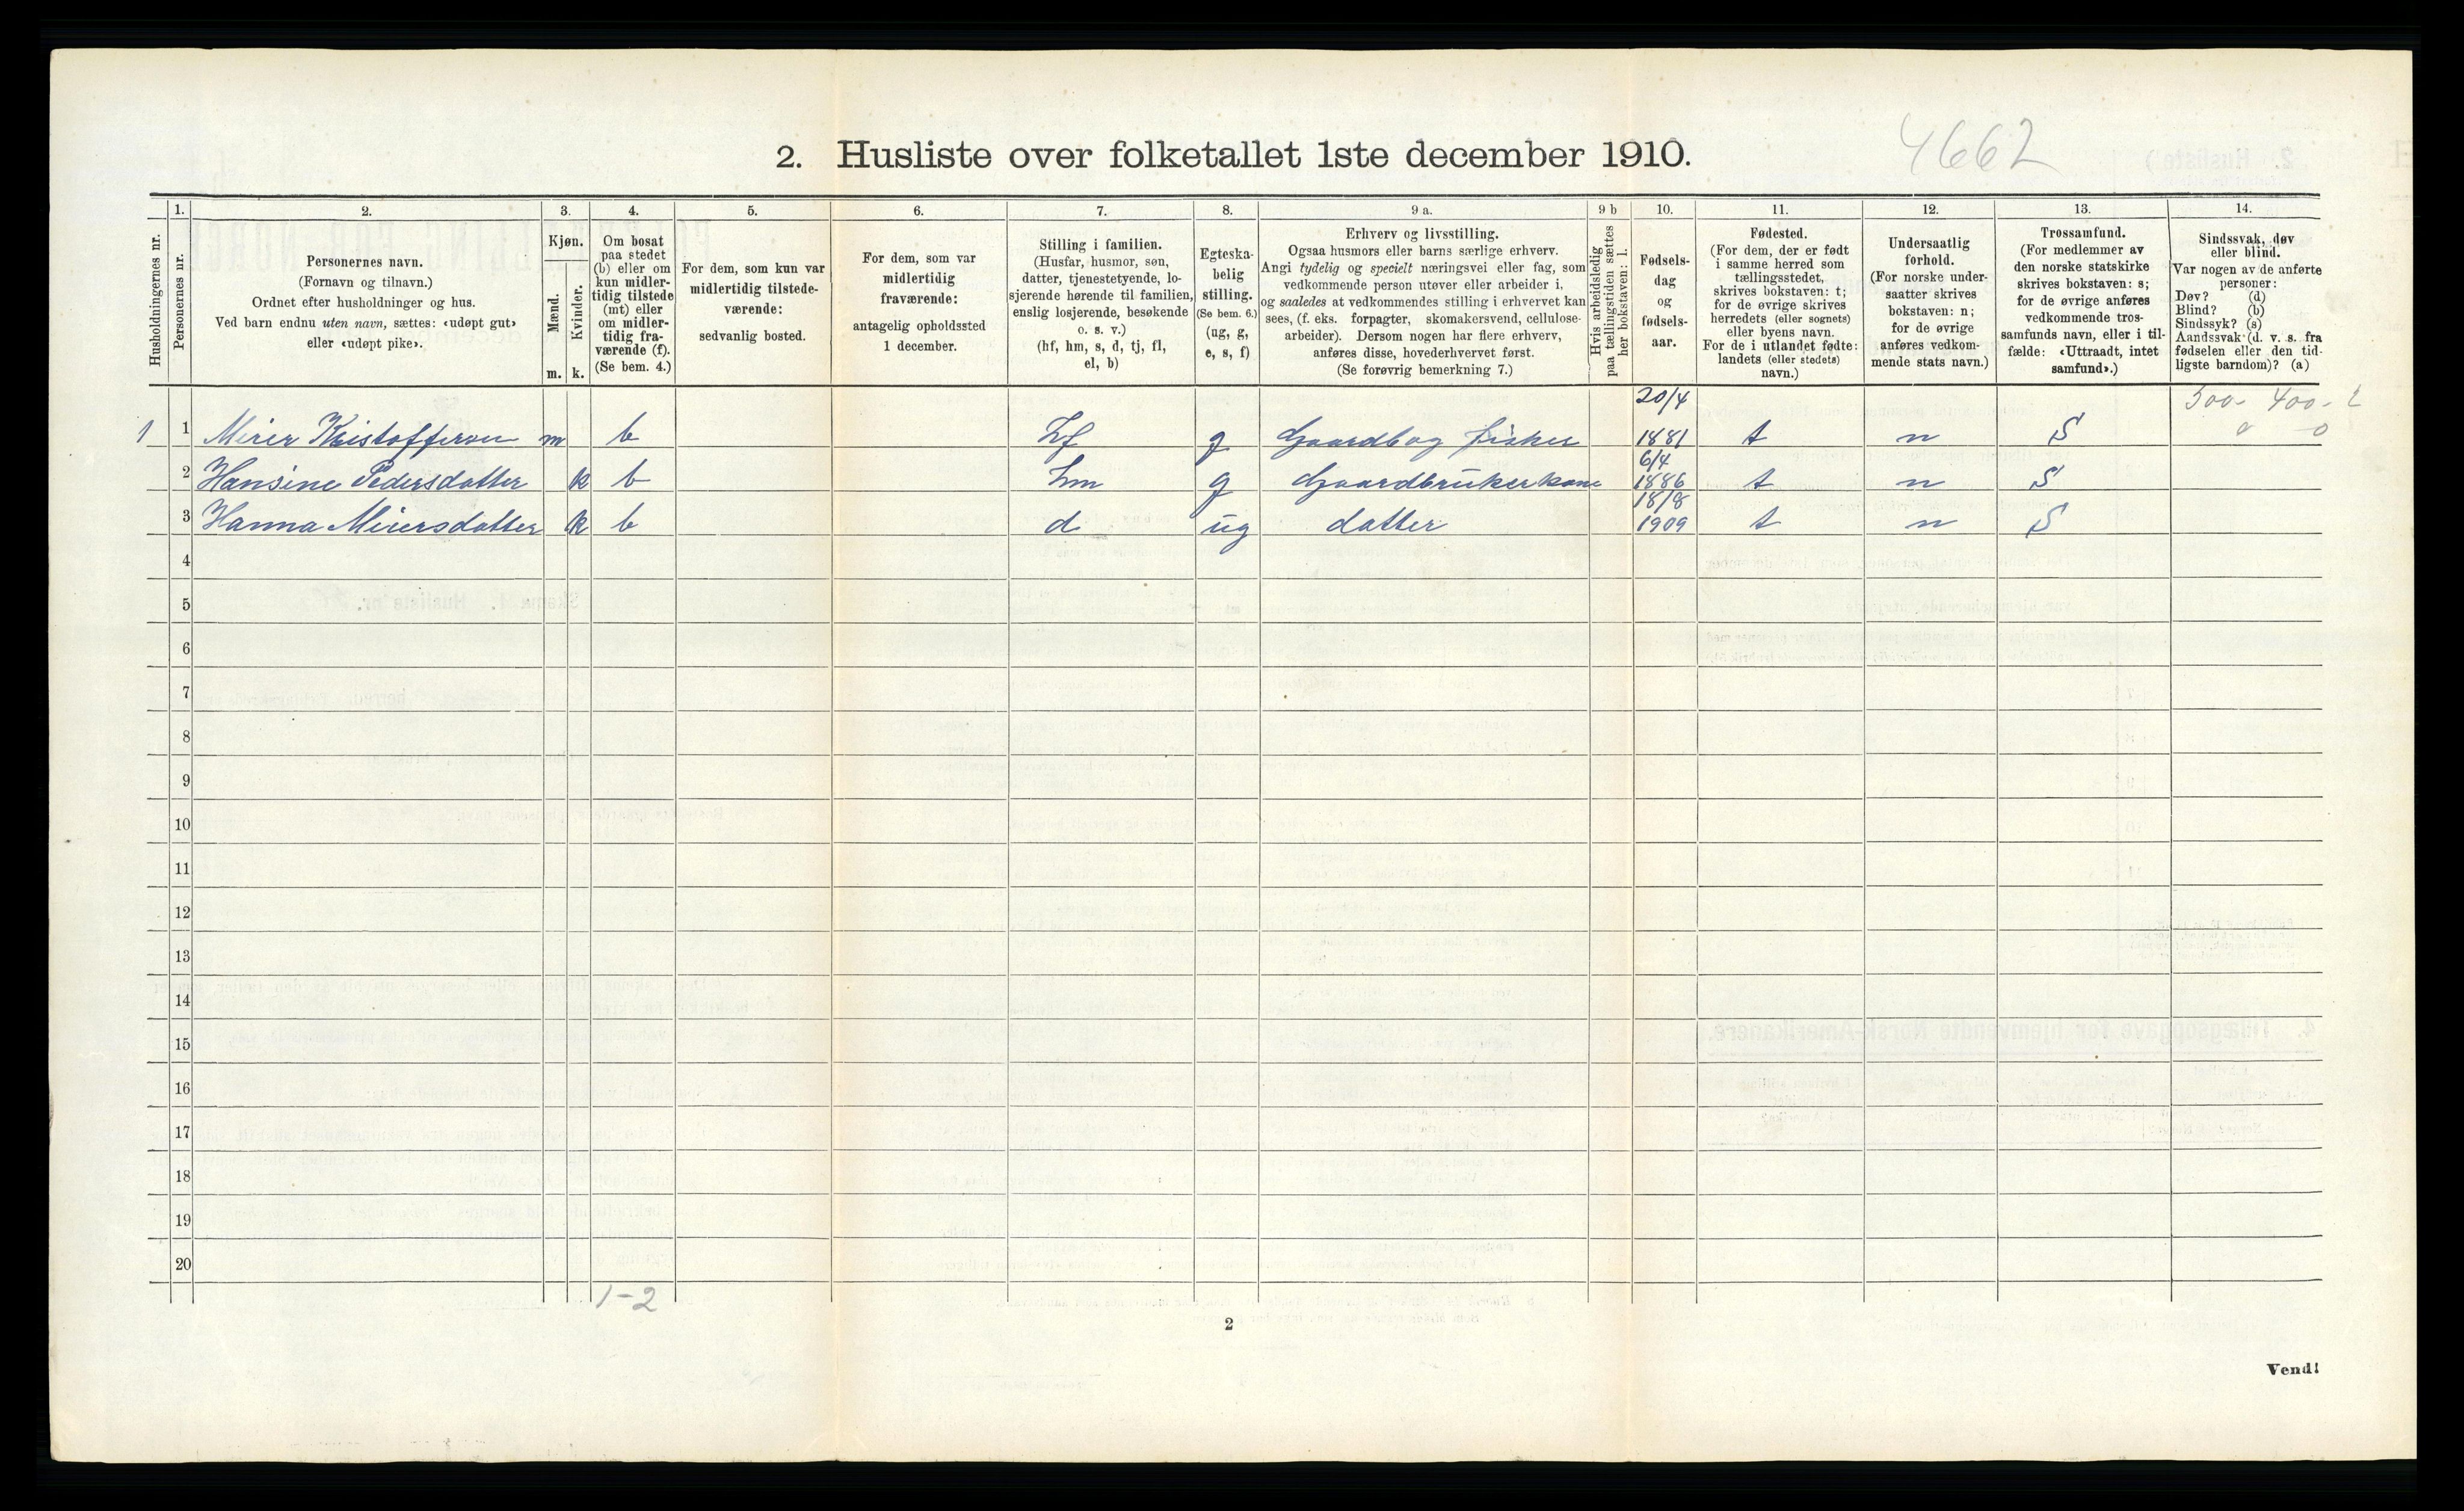 4662
2. Husliste over folketallet 1ste december 1910.
Husholdningernes nr.
1.
Personernes nr.
2.
Personernes navn.
(Fornavn og tilnavn.)
Ordnet efter husholdninger og hus.
Ved barn endnu uten navn, sættes: «udøpt gut»
eller «udøpt pike».
3.
Kjøn.
Mænd.
Kvinder.
m. k.
4.
Om bosat
paa stedet
(b) eller om
kun midler-
tidig tilstede
(mt) eller
om midler-
tidig fra-
værende (f).
(Se bem. 4.)
5.
For dem, som kun var
midlertidig tilstede-
værende:
sedvanlig bosted.
6.
For dem, som var
midlertidig
fraværende:
antagelig opholdssted
1 december.
7.
Stilling i familien.
(Husfar, husmor, søn,
datter, tjenestetyende, lo-
sjerende hørende til familien,
enslig losjerende, besøkende
o. s. v.)
(hf, hm, s, d, tj, fl,
el, b)
8.
Egteska-
belig
stilling.
(Se bem. 6.)
(ug, g,
e, s, f)
9 a.
Erhverv og livsstilling.
Ogsaa husmors eller barns særlige erhverv.
Angi tydelig og specielt næringsvei eller fag, som
vedkommende person utøver eller arbeider i,
og saaledes at vedkommendes stilling i erhvervet kan
sees, (f. eks. forpagter, skomakersvend, cellulose-
arbeider). Dersom nogen har flere erhverv,
anføres disse, hovederhvervet først.
(Se forøvrig bemerkning 7.)
9 b
Hvis arbeidsledig
paa tællingstiden sættes
her bokstaven: l.
10.
Fødsels-
dag
og
fødsels-
aar.
11.
Fødested.
(For dem, der er født
i samme herred som
tællingsstedet,
skrives bokstaven: t;
for de øvrige skrives
herredets (eller sognets)
eller byens navn.
For de i utlandet fødte:
landets (eller stedets)
navn.)
12.
Undersaatlig
forhold.
(For norske under-
saatter skrives
bokstaven: n;
for de øvrige
anføres vedkom-
mende stats navn.)
13.
Trossamfund.
(For medlemmer av
den norske statskirke
skrives bokstaven: s;
for de øvrige anføres
vedkommende tros-
samfunds navn, eller i til-
fælde: «Uttraadt, intet
samfund».)
14.
Sindssvak, døv
eller blind.
Var nogen av de anførte
personer:
Døv? (d)
Blind? (b)
Sindssyk? (s)
Aandssvak (d. v. s. fra
fødselen eller den tid-
ligste barndom)? (a)
300- 400- 2
0 0
1 1 Meier Kristoffersen m b hf g Gaardb og fisker 20/4 1881 t n S
2 Hansine Pedersdatter k b hm g Gaardbrukerkone 6/4 1886 t n S
3 Hanna Meiersdatter k b d ug datter 18/8 1909 t n S
4
5
6
7
8
9
10
11
12
13
14
15
16
17
18
19
20
1-2
2
Vend!